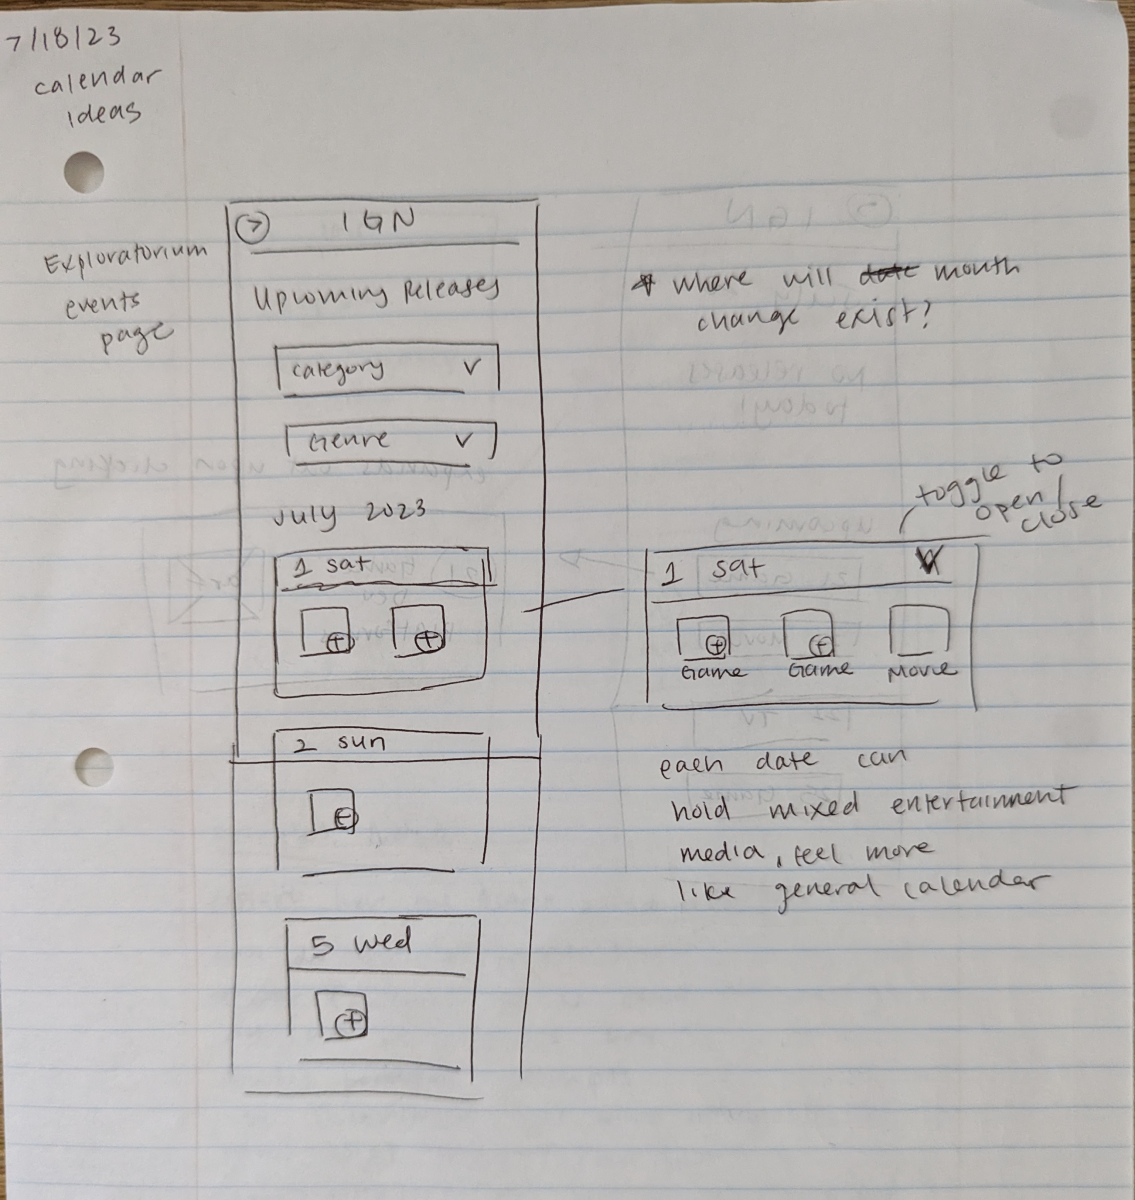 7/18/23
calendar
ideas
Exploratorium
events
page
IGN
Upcoming Releases
category
Genre
July 2023
1 sat
2 sun
5 wed
* where will date month
change exist?
toggle to
open/
close
1 sat
Game Game Movie
each date can
hold mixed entertainment
media, feel more
like general calendar